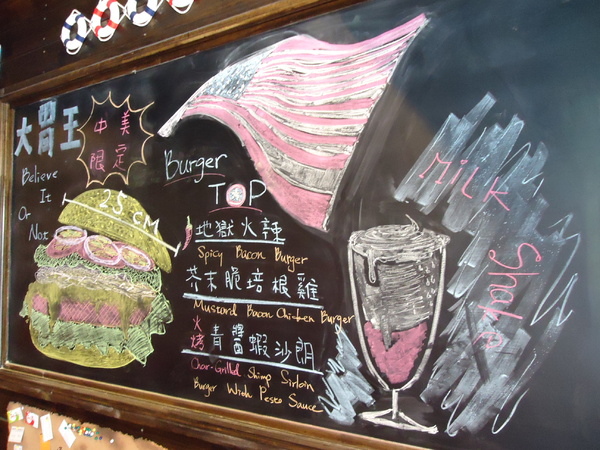 大胃王
中美
限定
Believe
It
Or
Not
25 CM
Burger
TOP
地獄火辣
Spicy Bacon Burger
芥末脆培根雞
Mustard Bacon Chicken Burger
火烤青醬蝦沙朗
Char-Grilled Shimp Sirloin
Burger With Pesto Sauce
Milk
Shake